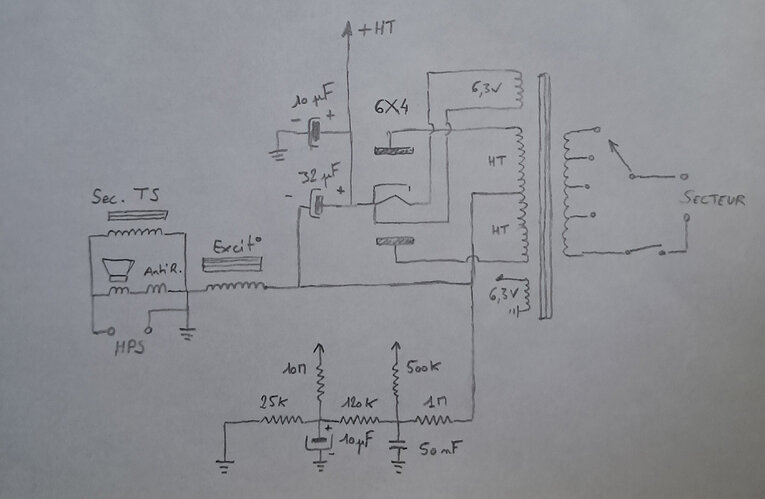 +HT
6,3V
10 µF
- +
6X4
HT
32 µF
- +
Sec. TS
SECTEUR
HT
Excit°
Anti R.
6,3V
HPS
10M
500K
25K
120K
1M
+
10µF
-
50nF